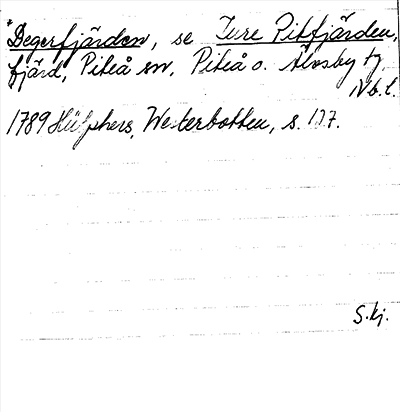 *Degerfjärden, se Inre Pitfjärden,
fjärd, Piteå sn, Piteå o. Älvsby tg
Nb.l.
1789 Hülphers, Westerbotten, s. 127.
S.kj.